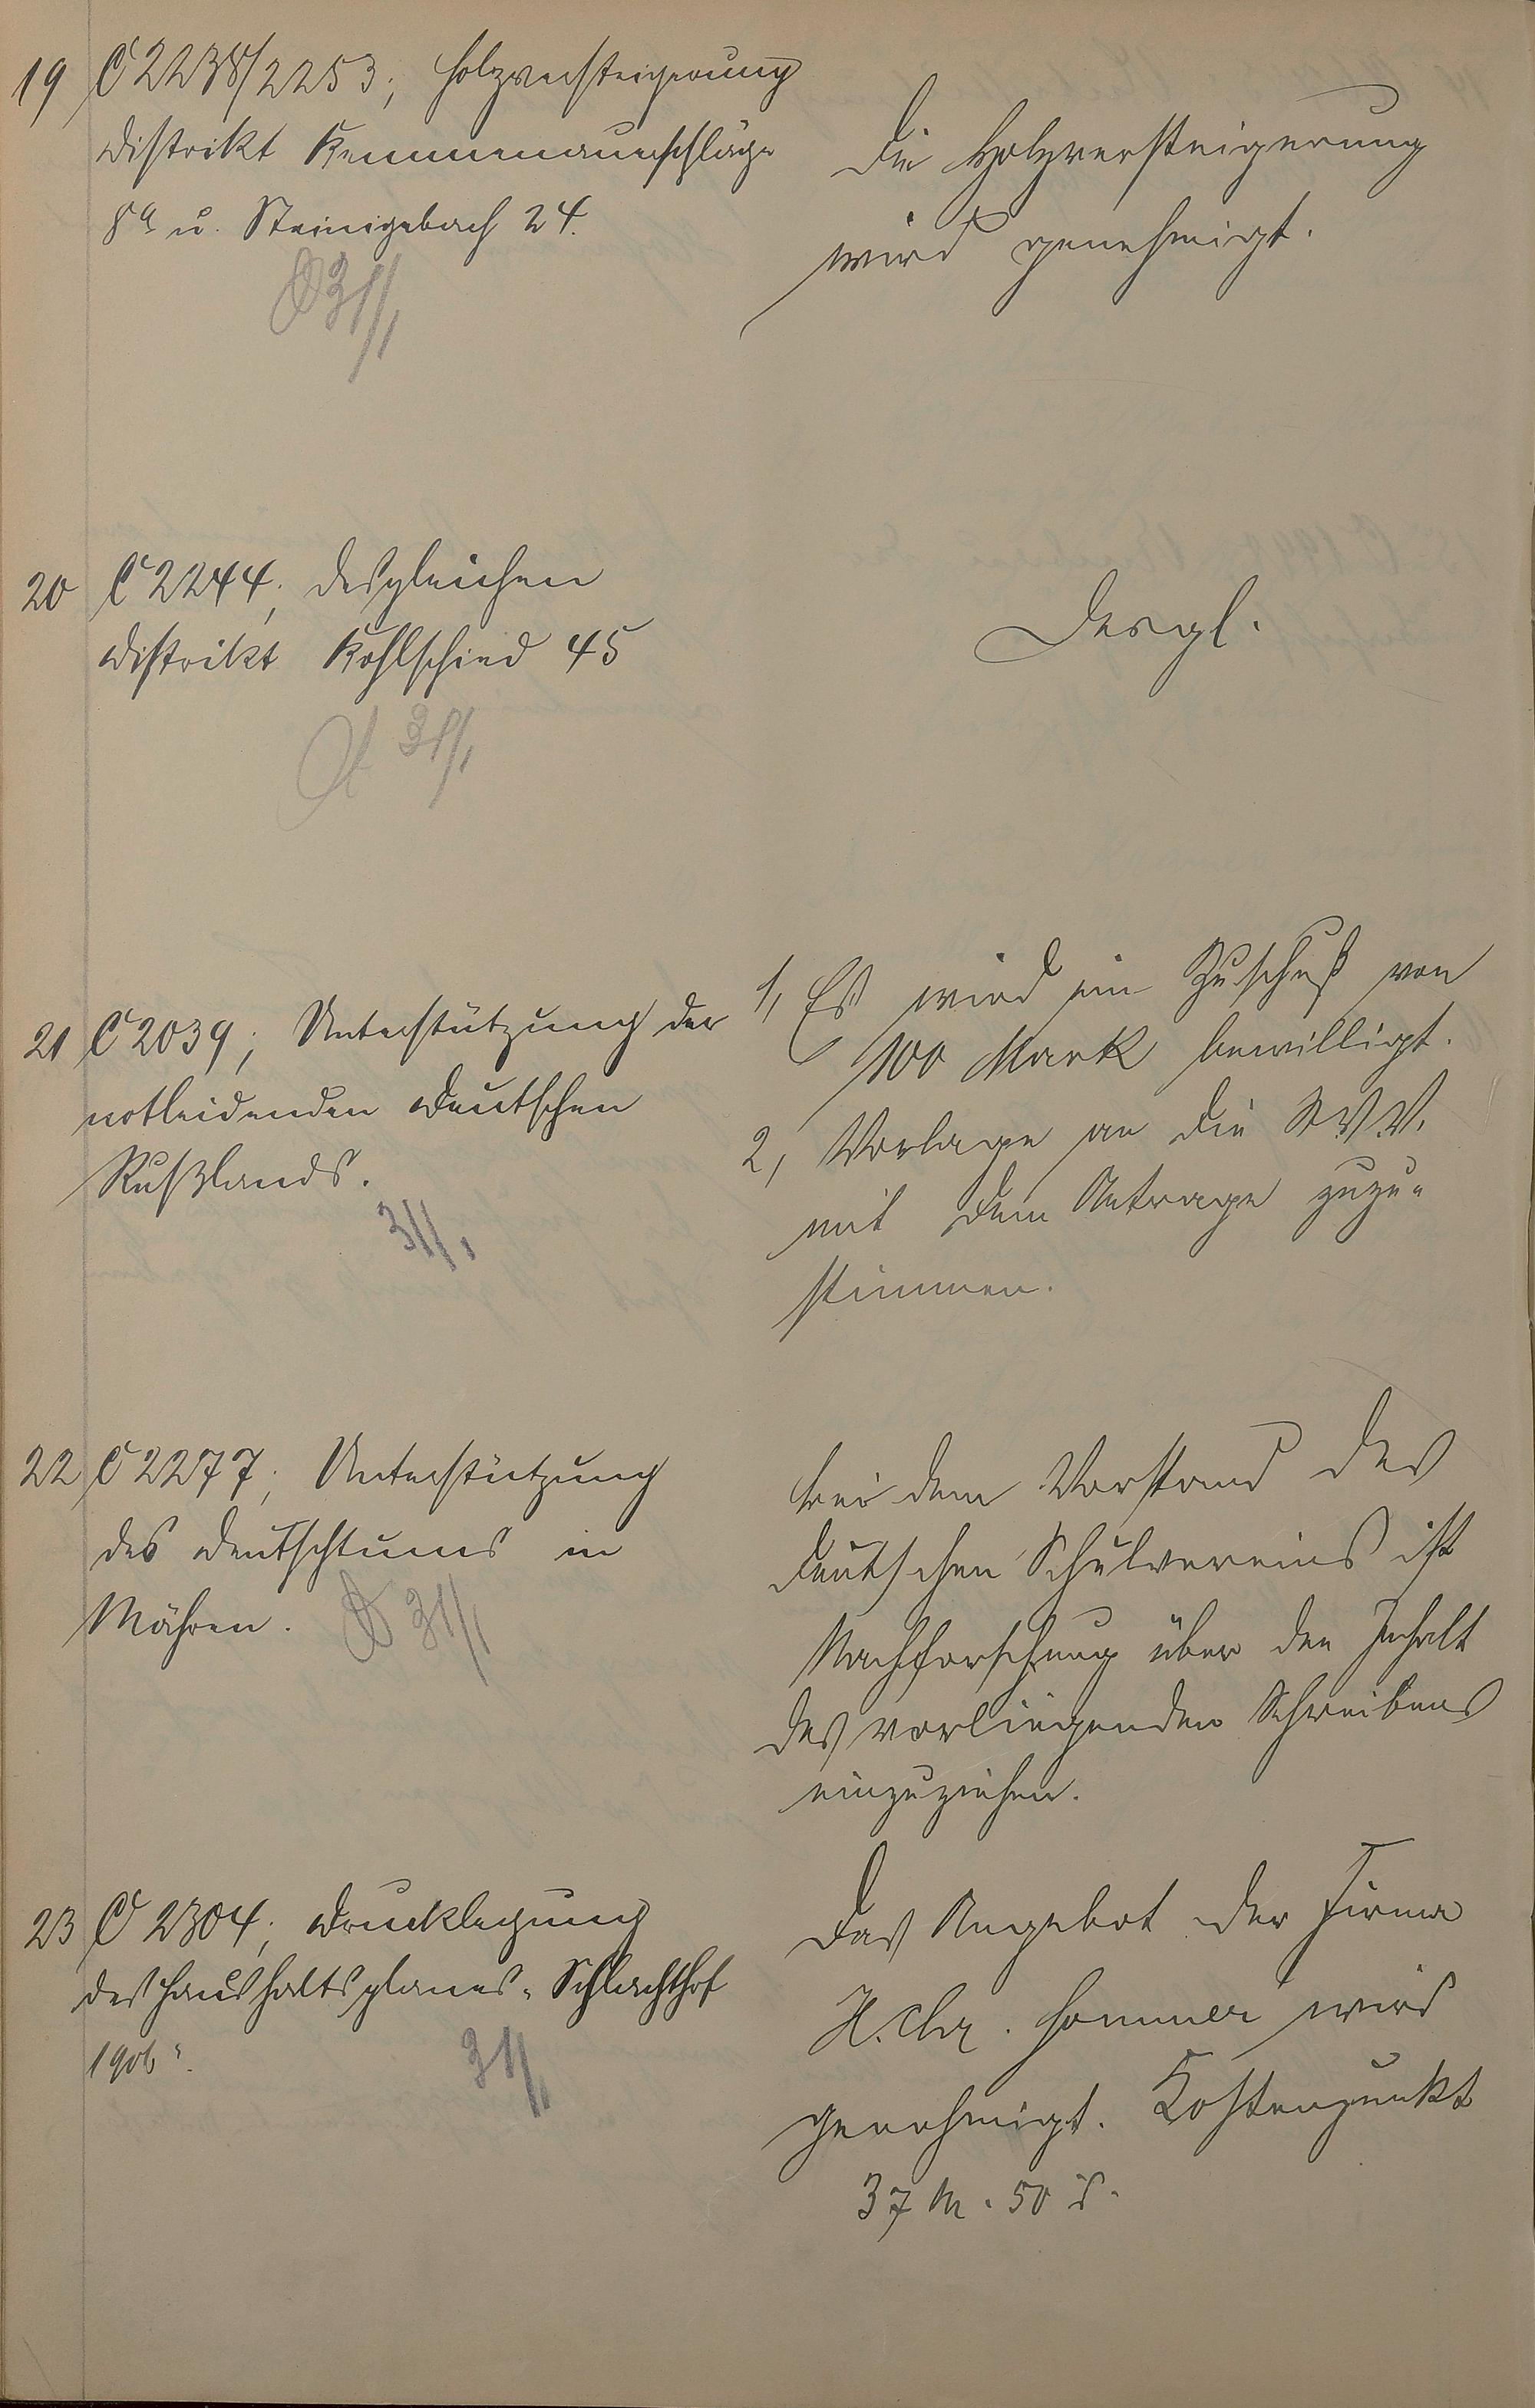 19 C 2238/2253; Holzversteigerung
Distrikt Kemmenauerschläge
8a u. Steinigebach 24.
31/1
Die Holzversteigerung
wird genehmigt.
20 C 2244; desgleichen
Distrikt Kohlschied 45
31/1
Desgl.
21 C 2039; Unterstützung der
notleidenden Deutschen
Rußlands.
31/1
1, Es wird ein Zuschuß von
100 Mark bewilligt.
2, Vorlage an die St.V.V.
mit dem Antrage zuzu-
stimmen.
22 C 2277; Unterstützung
des Deutschtums in
Mähren.
31/1
bei dem Vorstand des
deutschen Schulvereins ist
Nachforschung über den Inhalt
des vorliegenden Schreibens
einzuziehen.
23 C 2304; Drucklegung
des Haushaltsplanes „Schlachthof
1906“.
31/1
Das Angebot der Firma
H. Chr. Sommer wird
genehmigt. Kostenpunkt
37 M. 50 d.